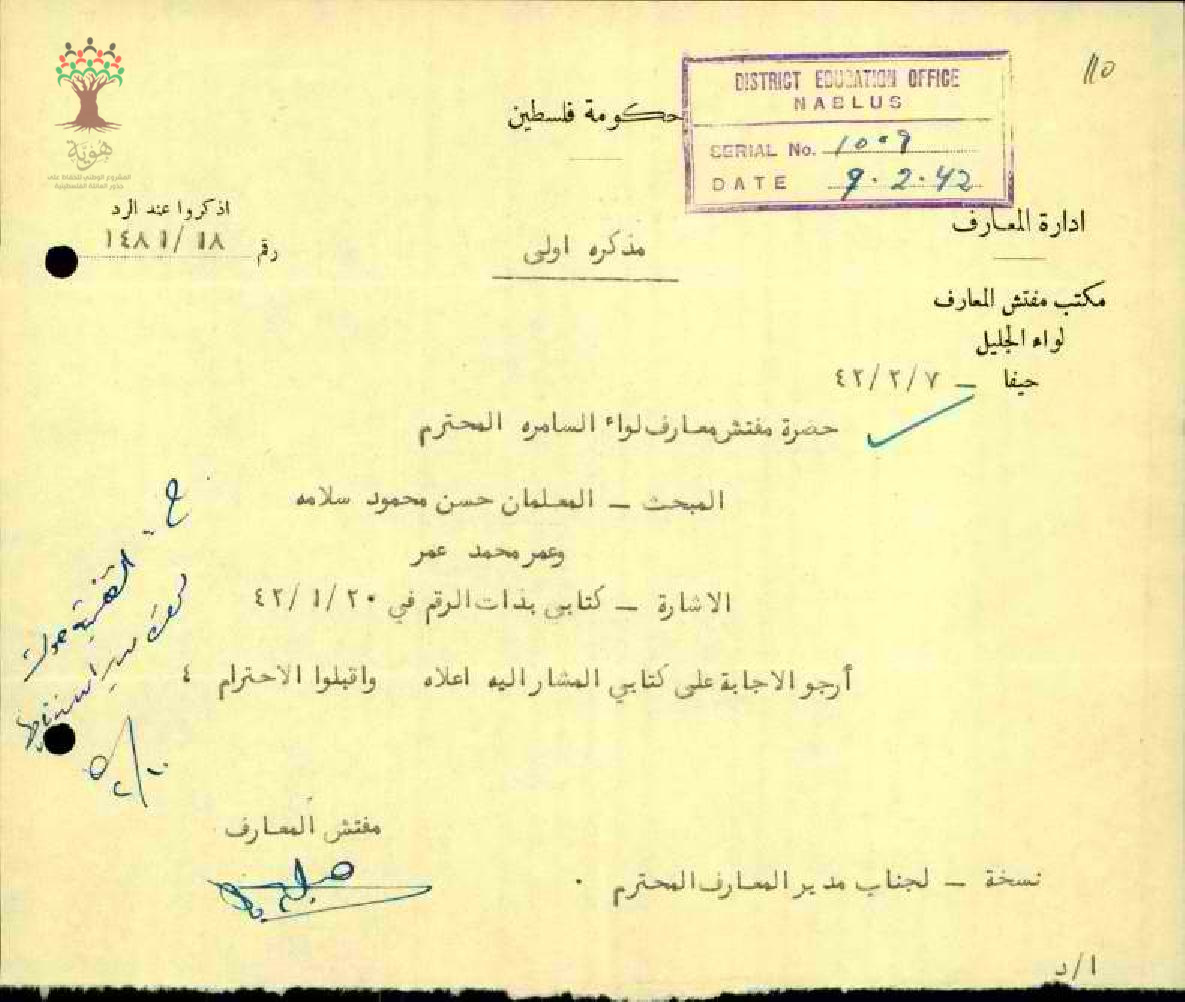 هوية
المشروع الوطني للحفاظ على
جذور العائلة الفلسطينية
DISTRICT EDUCATION OFFICE
NABLUS
SERIAL No. 1009
DATE 9.2.42
110
حكومة فلسطين
اذكروا عند الرد
رقم ١٤٨١/١٨
ادارة المعارف
مذكره اولى
مكتب مفتش المعارف
لواء الجليل
حيفا — ٤٢/٢/٧
حضرة مفتش معارف لواء السامره المحترم
المبحث — المعلمان حسن محمود سلامه
وعمر محمد عمر
الاشارة — كتابي بذات الرقم في ٤٢/١/٢٠
أرجو الاجابة على كتابي المشار اليه اعلاه واقبلوا الاحترام ٤
مفتش المعارف
نسخة — لجناب مدير المعارف المحترم .
ا/د